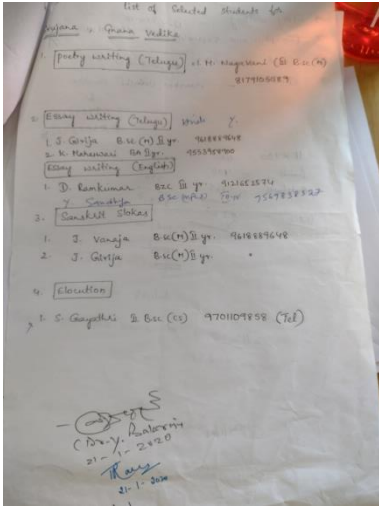 list of Selected students for
Srujana - Gnana Vedika
1. Poetry writing (Telugu) M. Nagaveni (III B.Sc(M)
8179105089
2. Essay writing (Telugu)
1. S. Girija B.Sc(M) II yr. 9618889648
2. K. Maheswari BA II yr. 9553958900
Essay writing (English)
1. D. Ramkumar BZC III yr. 9121652574
Y Sandhya B.Sc 9569838527
3. Sanskrit Slokas
1. J. Vanaja B.Sc(M) II yr. 9618889648
2. J. Girija B.Sc(M) II yr.
4. Elocution
1. S. Gayathri II B.Sc (CS) 9701109858 (Tel)
(Dr. Y.
21-1-2020
21-1-2020